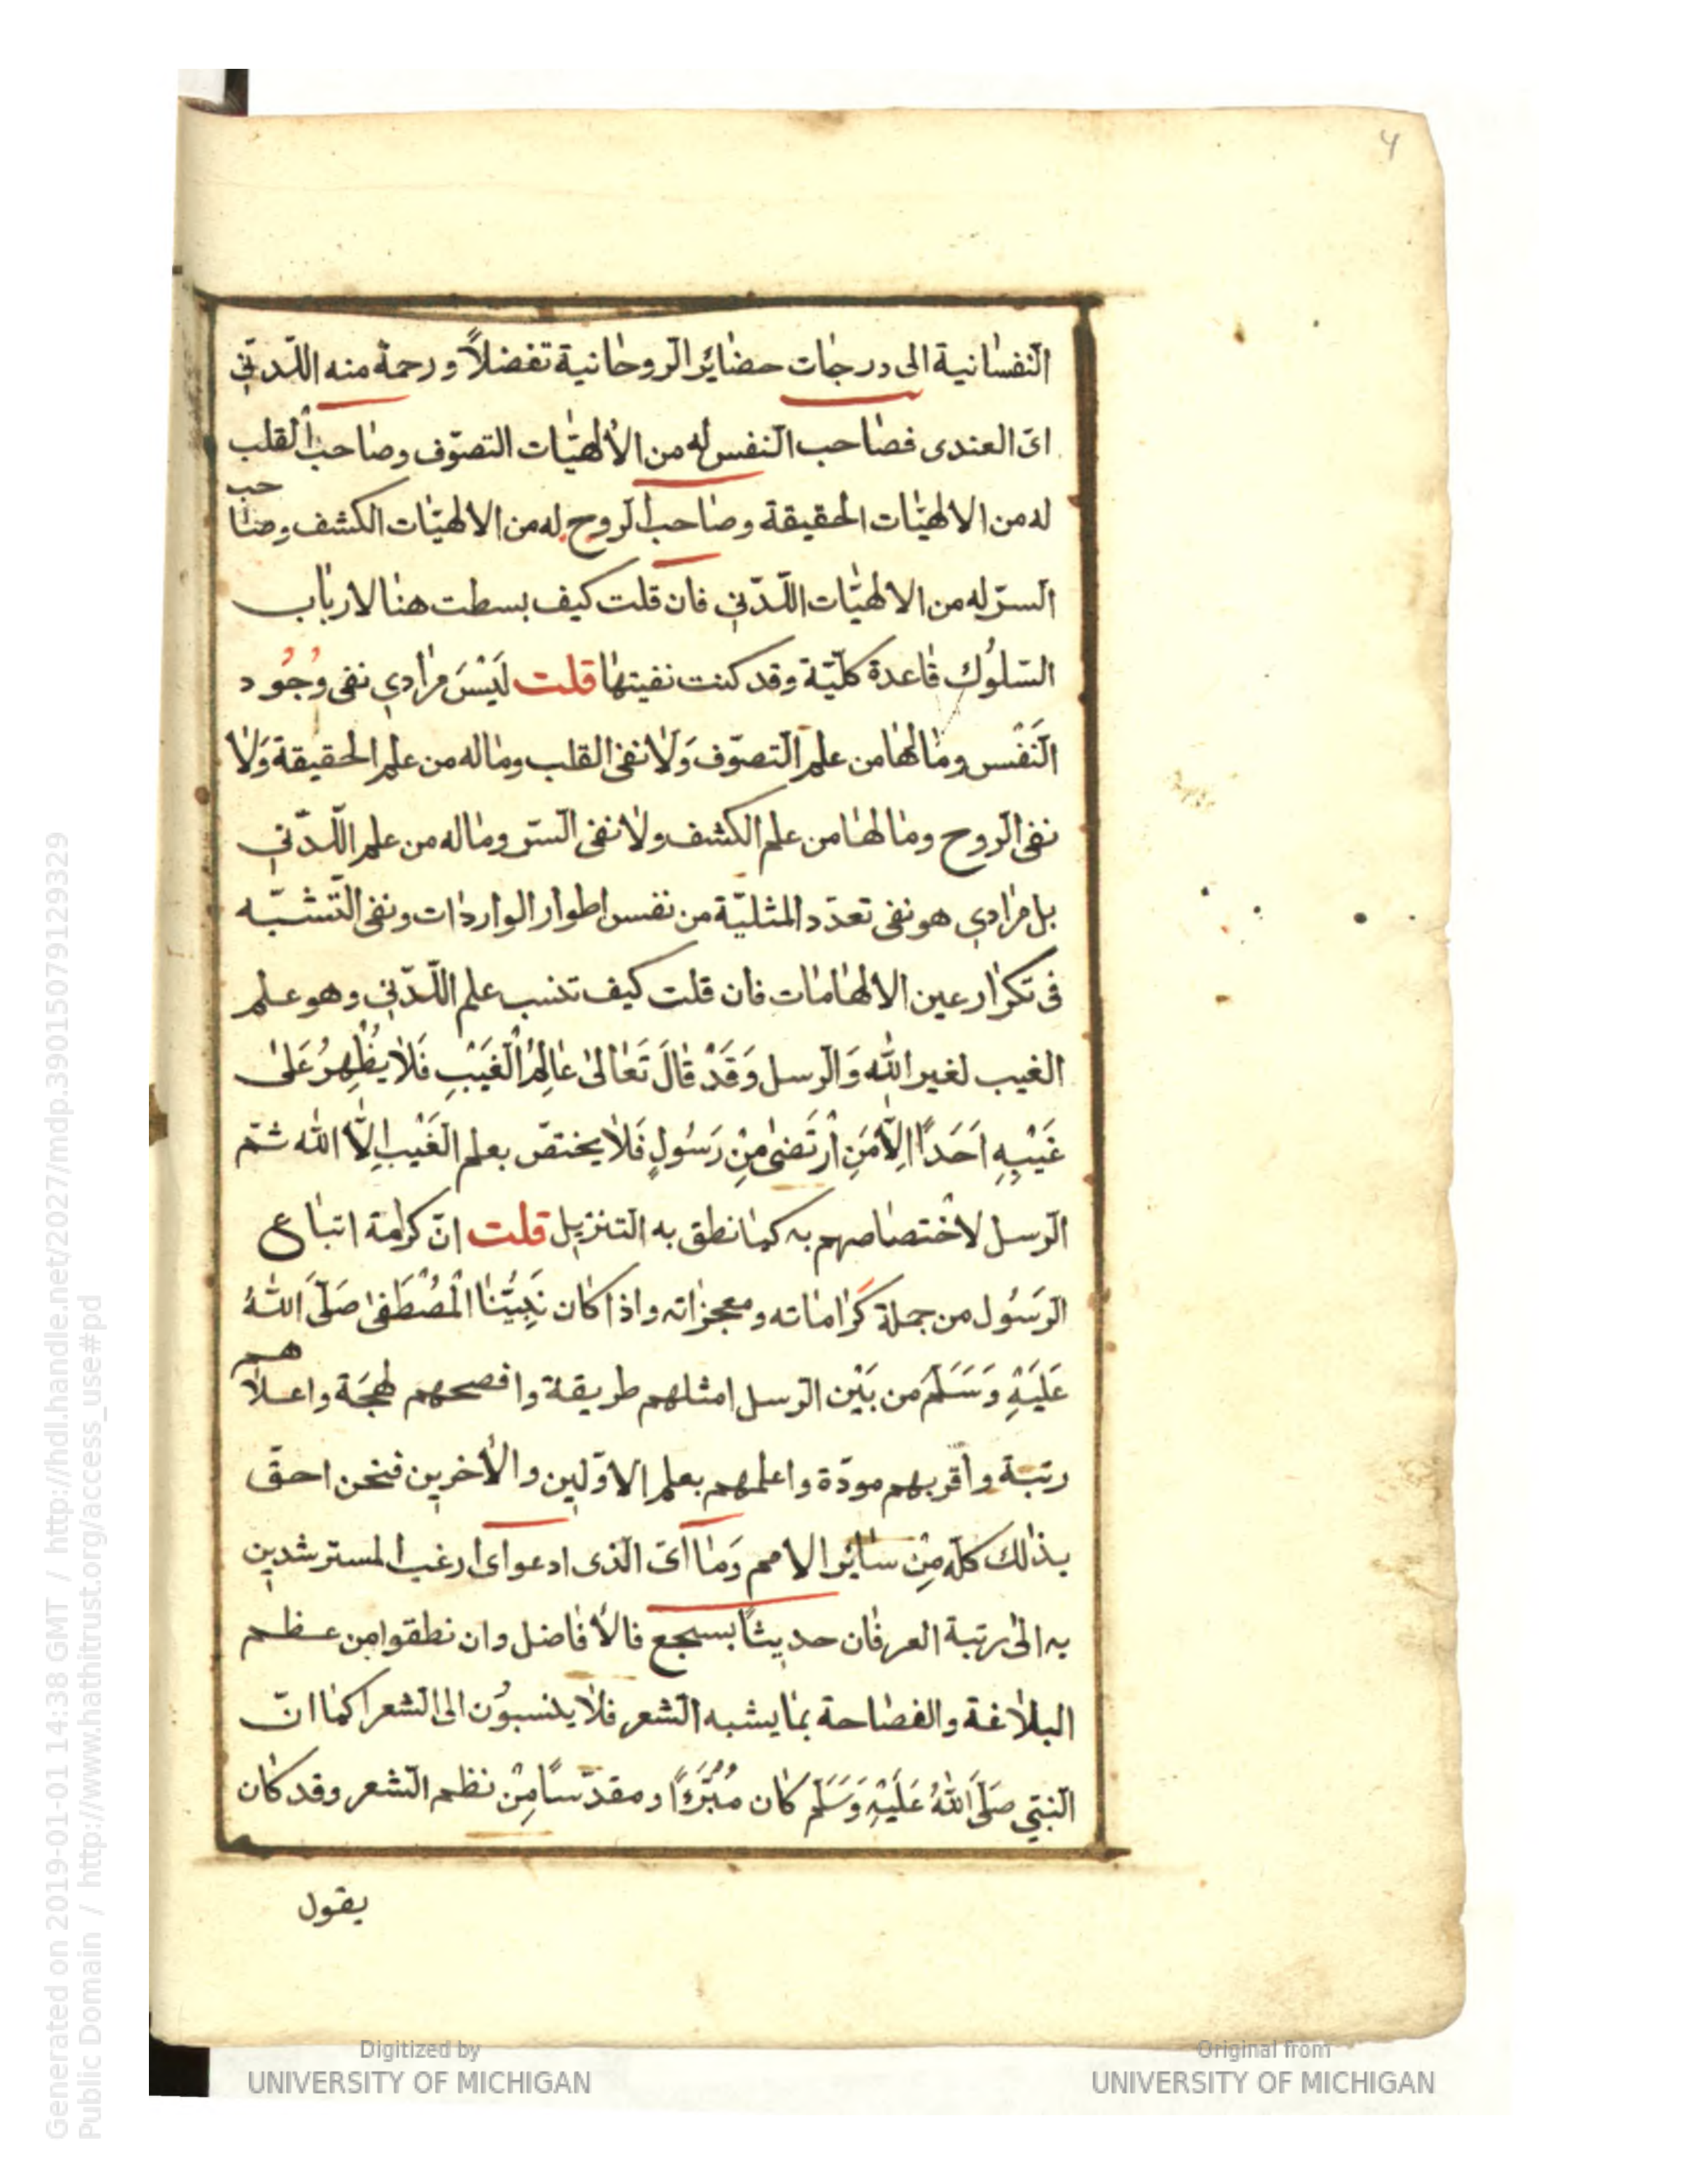 4
النفسانية الى درجات حضاير الروحانية تفضلاً ورحمة منه اللّدنّي
اى العندى فصاحب النفس له من الالهيّات التصوّف وصاحب القلب
له من الالهيّات الحقيقة وصاحب الروح له من الالهيّات الكشف وصاحب
السرّ له من الالهيّات اللّدنّي فان قلت كيف بسطت هنا لارباب
السّلوُك قاعدة كلّيّة وقد كنت نفيتها قلت لَيْسَ مرادي نفى وُجُود
النَفْس وما لها من علم التصوّف وَلَا نفى القلب وماله من علم الحقيقة وَلَا
نفى الروح وما لها من علم الكشف ولا نفى السّر وماله من علم اللّدنّي
بل مرادي هو نفى تعدّد المثليّة من نفس اطوار الواردات ونفى التّشبّه
فى تكرار عين الالهامات فان قلت كيف تنسب علم اللّدنّي وهو علم
الغيب لغير الله وَالرسل وَقَدْ قَالَ تَعَالىٰ عَالِمُ الْغَيْبِ فَلَا يُظْهِرُ عَلىٰ
غَيْبِهِ اَحَدًا اِلَّا مَنِ ارْتَضىٰ مِنْ رَسُولٍ فَلَا يختصّ بعلم الغَيْبِ اِلَّا الله ثمّ
الرسل لاختصاصهم به كما نطق به التنزيل قلت انّ كرامة اتباع
الرسُول من جملة كراماته ومعجزاته واذا كان نَبِيُّنَا الْمُصْطَفىٰ صَلَّى اللهُ
عَلَيْهِ وَسَلَّم من بَيْن الرسل امثلهم طريقة وافصحهم لهجَة واعلاهم
رتبة واقربهم مودّة واعلمهم بعلم الاوّلين والأخرين فنحن احقّ
بذلك كلّه مِنْ سائر الامم وَما اىّ الذى ادعوا اى ارغب المسترشدين
به الى رتبة العرفان حديثاً بسجع فالأفاضل وان نطقوا من عظم
البلاغة والفصاحة بما يشبه الشعر فلا ينسبوُن الى الشعر كما انّ
النبّي صَلَّى اللهُ عَلَيْهِ وَسَلَّم كان مُبَرَّءًا ومقدّسًا مِنْ نظم الشعر وقد كان
يقول
Digitized by
UNIVERSITY OF MICHIGAN
Original from
UNIVERSITY OF MICHIGAN
Generated on 2019-01-01 14:38 GMT / http://hdl.handle.net/2027/mdp.39015079129329
Public Domain / http://www.hathitrust.org/access_use#pd